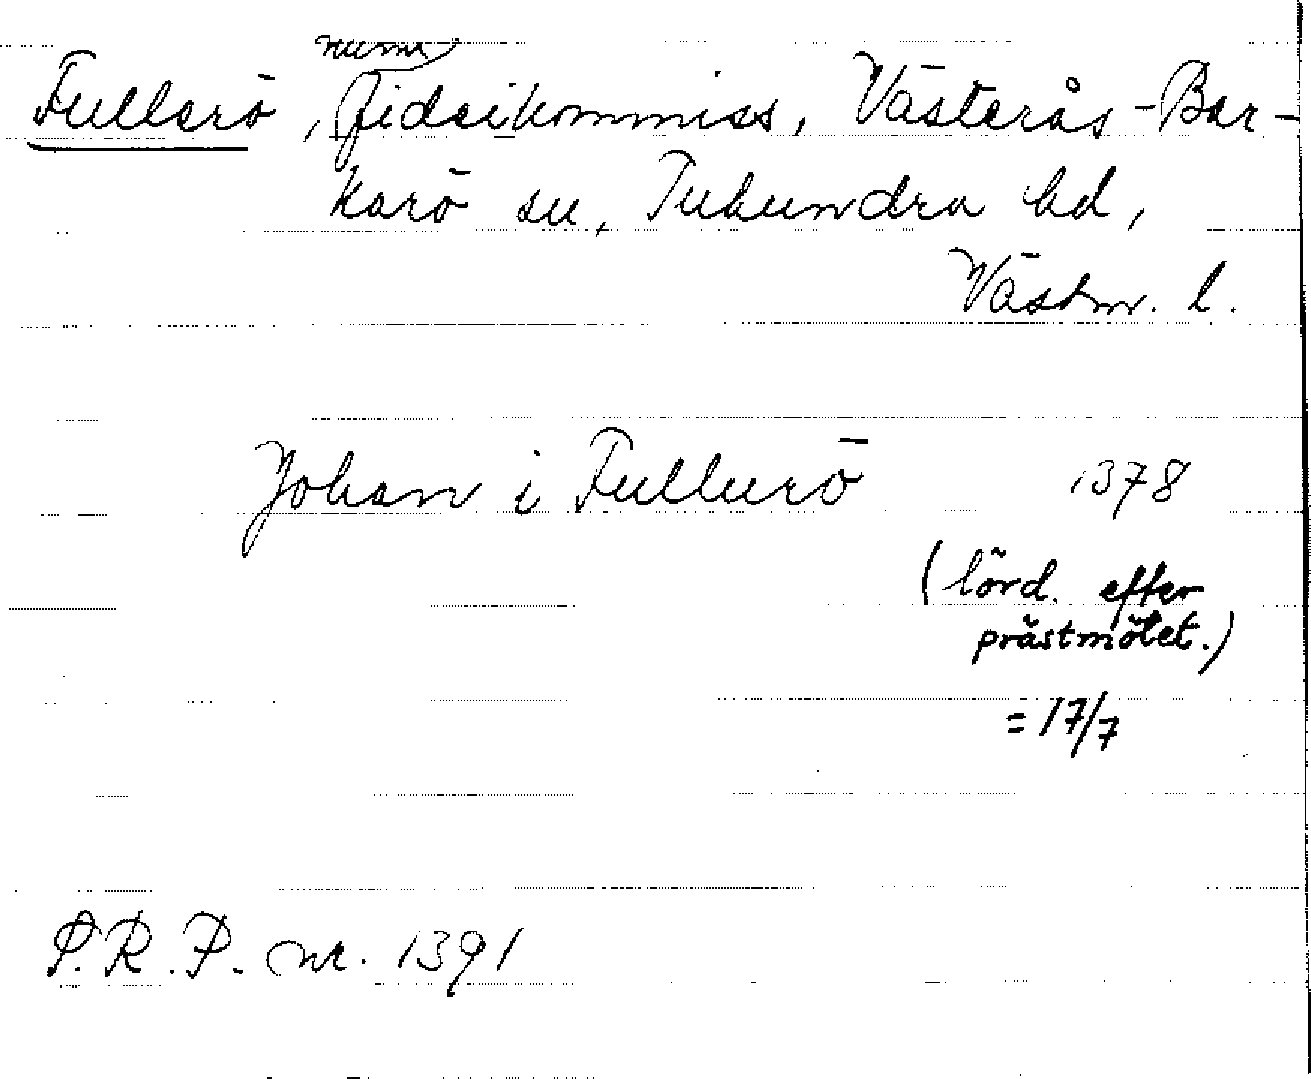 Fullerö, numr fideikommiss, Västerås-Bar-
karö sn, Tuhundra hd,
Västm. l.
Johan i Fullurö 1378
(lörd. efter
prästmötet.)
= 17/7
P.R.P. nr. 1391